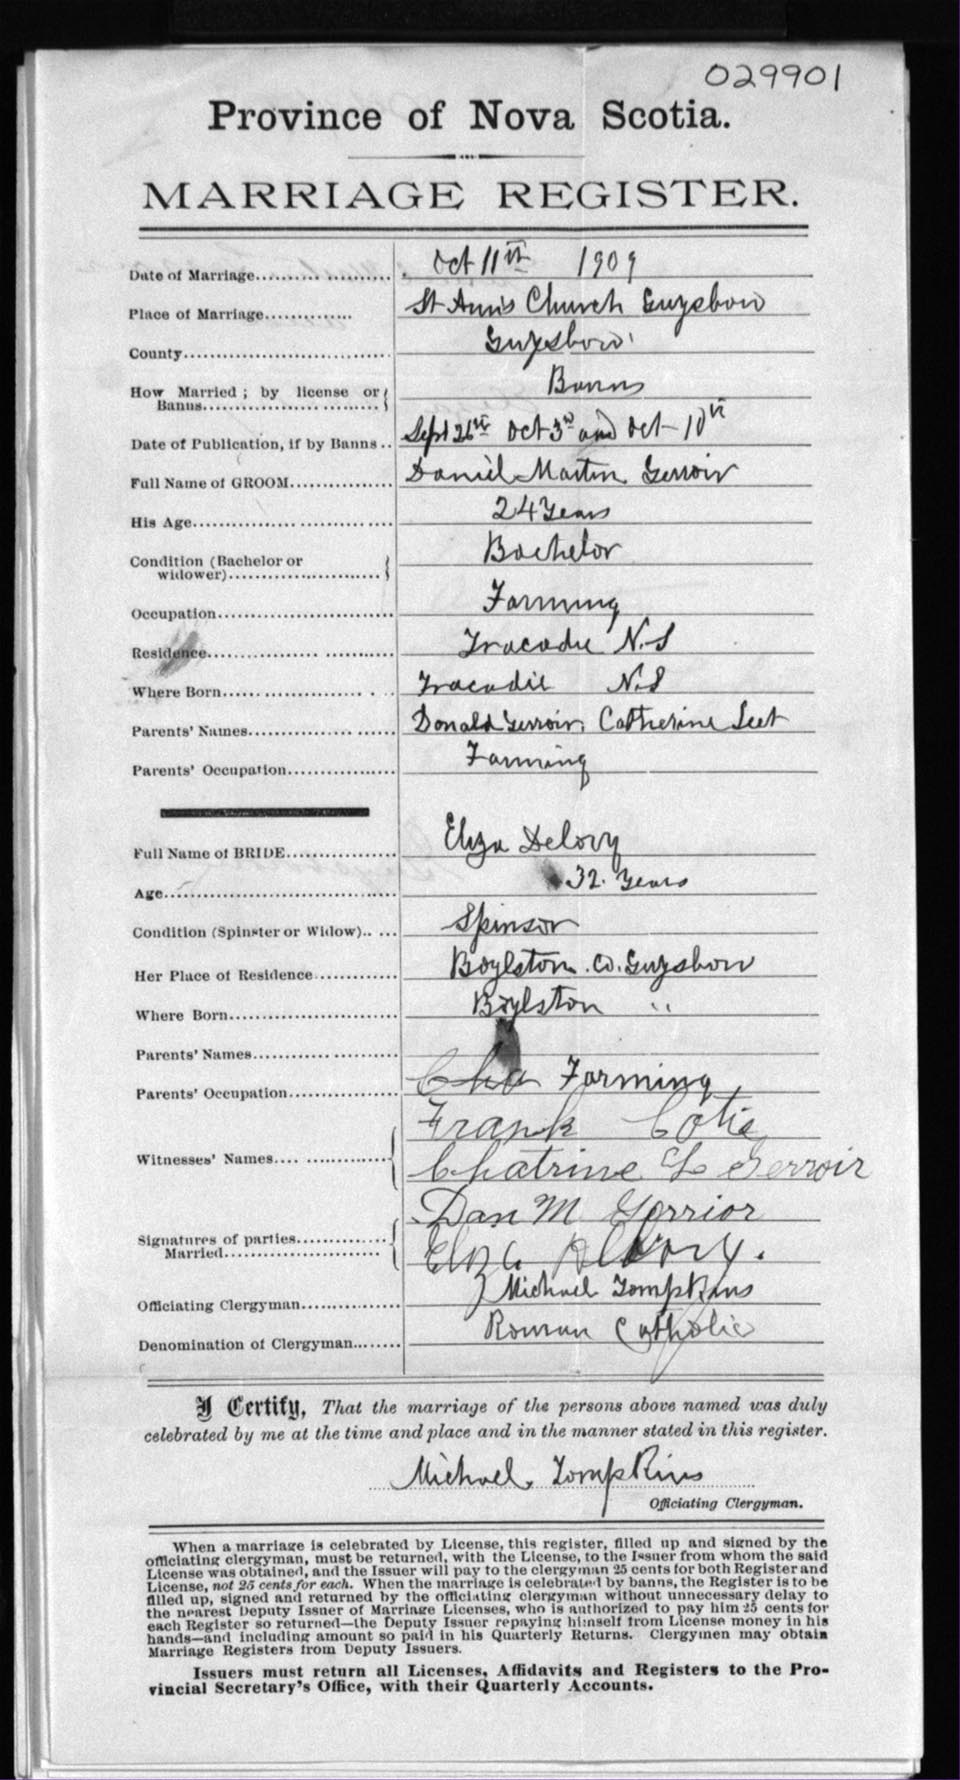 029901
Province of Nova Scotia.
MARRIAGE REGISTER.
Date of Marriage Oct 11th 1909
Place of Marriage St Ann's Church Guysboro
County Guysboro
How Married; by license or Banns Banns
Date of Publication, if by Banns Sept 26th Oct 3rd and Oct 10th
Full Name of GROOM Daniel Martin Gerroir
His Age 24 Years
Condition (Bachelor or widower) Bachelor
Occupation Farming
Residence Tracadie N.S
Where Born Tracadie N.S
Parents' Names Donald Gerroir, Catherine Leet
Parents' Occupation Farming
Full Name of BRIDE Eliza Delory
Age 32 Years
Condition (Spinster or Widow) Spinsor
Her Place of Residence Boylston Co. Guysboro
Where Born Boylston "
Parents' Names
Parents' Occupation Farming
Witnesses' Names Frank Cotie
Chatrine L Gerroir
Signatures of parties Married Dan M Gerrior
Eliza Delory.
Officiating Clergyman Michael Tompkins
Denomination of Clergyman Roman Catholic
I Certify, That the marriage of the persons above named was duly
celebrated by me at the time and place and in the manner stated in this register.
Michael Tompkins
Officiating Clergyman.
When a marriage is celebrated by License, this register, filled up and signed by the
officiating clergyman, must be returned, with the License, to the Issuer from whom the said
License was obtained, and the Issuer will pay to the clergyman 25 cents for both Register and
License, not 25 cents for each. When the marriage is celebrated by banns, the Register is to be
filled up, signed and returned by the officiating clergyman without unnecessary delay to
the nearest Deputy Issuer of Marriage Licenses, who is authorized to pay him 25 cents for
each Register so returned—the Deputy Issuer repaying himself from License money in his
hands—and including amount so paid in his Quarterly Returns. Clergymen may obtain
Marriage Registers from Deputy Issuers.
Issuers must return all Licenses, Affidavits and Registers to the Pro-
vincial Secretary's Office, with their Quarterly Accounts.